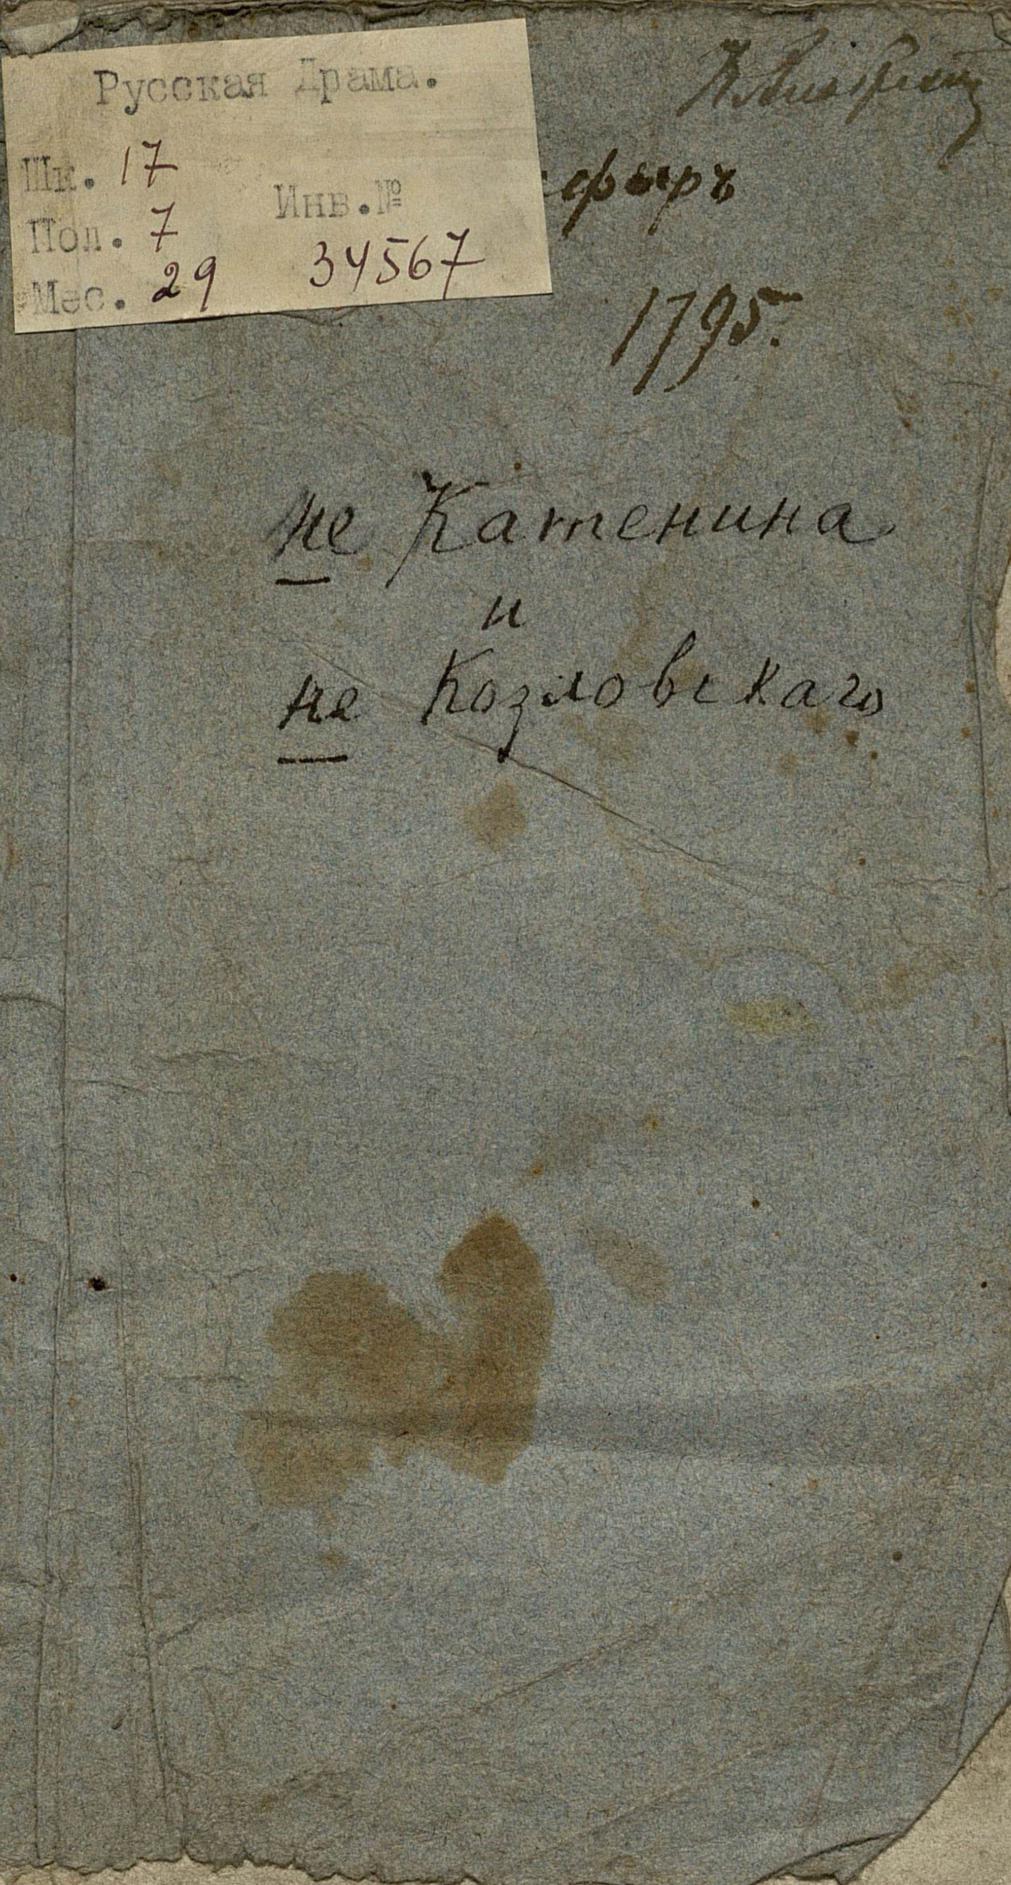 Русская Драма.
Шк. 17
Инв.№
Пол. 7
Мес. 29
34567
фыръ
1795.
не Катенина
и
не Козловскаго